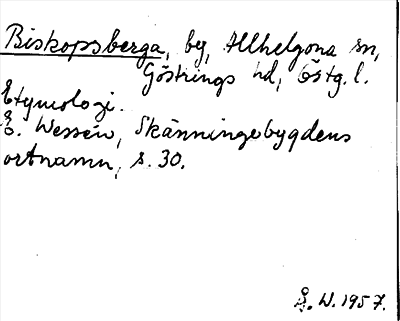 Biskopsberga, by, Allhelgona sn,
Göstrings hd, Östg. l.
Etymologi.
E. Wessén, Skänningebygdens
ortnamn, s. 30.
Å. W. 1957.